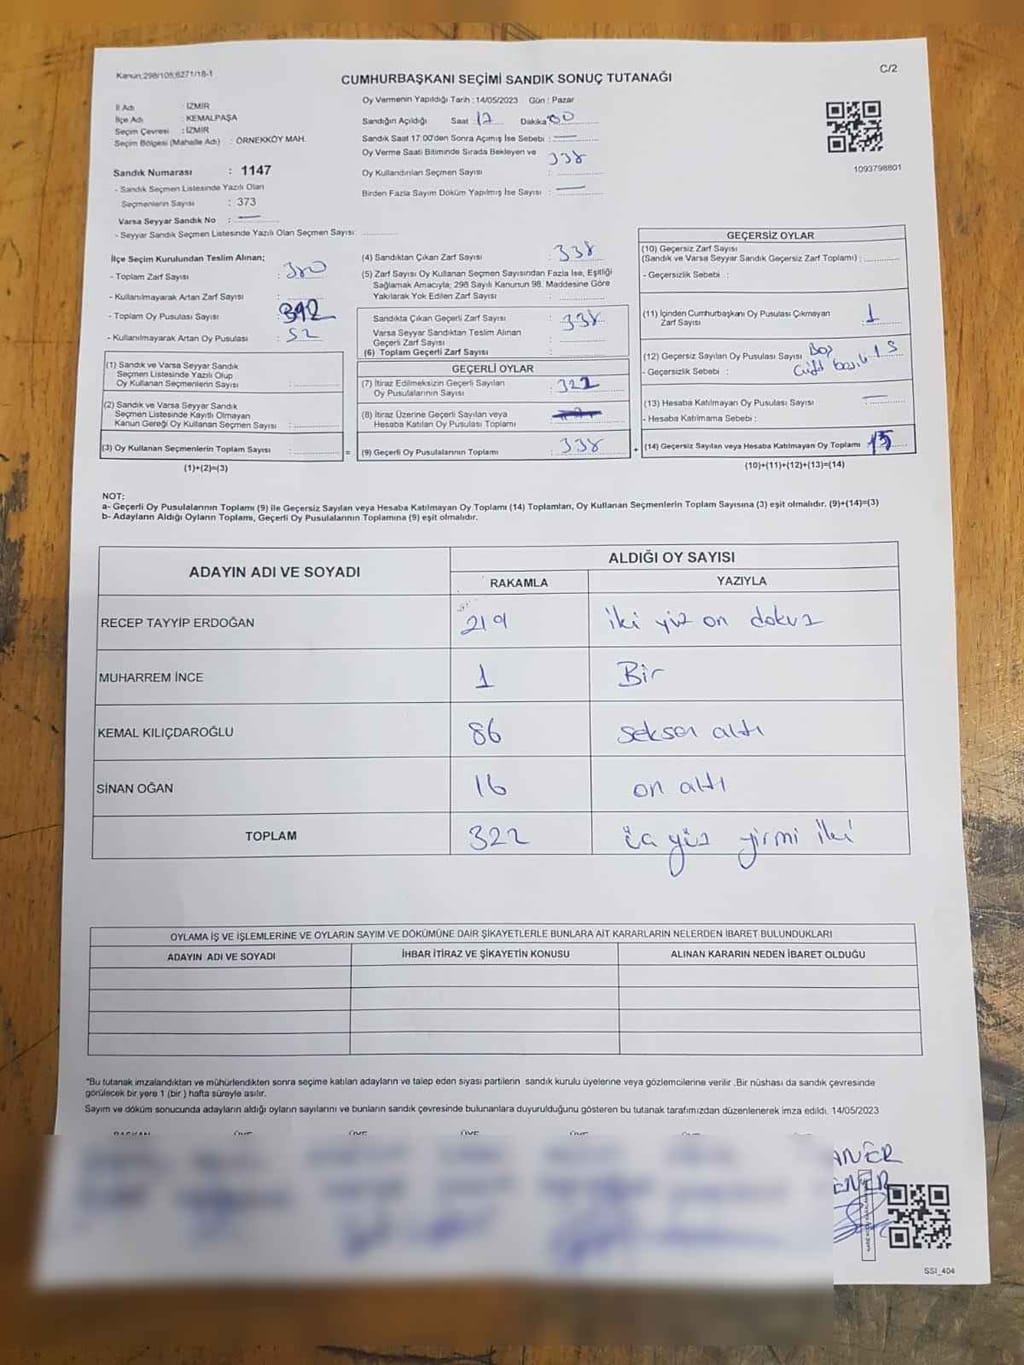 Kanun;298/105;6271/18-1
C/2
CUMHURBAŞKANI SEÇİMİ SANDIK SONUÇ TUTANAĞI
İl Adı : İZMİR
İlçe Adı : KEMALPAŞA
Seçim Çevresi : İZMİR
Seçim Bölgesi (Mahalle Adı) : ÖRNEKKÖY MAH.
Sandık Numarası : 1147
- Sandık Seçmen Listesinde Yazılı Olan
Seçmenlerin Sayısı : 373
Varsa Seyyar Sandık No : —
- Seyyar Sandık Seçmen Listesinde Yazılı Olan Seçmen Sayısı :
Oy Vermenin Yapıldığı Tarih : 14/05/2023 Gün : Pazar
Sandığın Açıldığı Saat 17 Dakika 00
Sandık Saat 17:00'den Sonra Açımış İse Sebebi : —
Oy Verme Saati Bitiminde Sırada Bekleyen ve
Oy Kullandırılan Seçmen Sayısı : 338
Birden Fazla Sayım Döküm Yapılmış İse Sayısı : —
1093798801
İlçe Seçim Kurulundan Teslim Alınan;
- Toplam Zarf Sayısı : 380
- Kullanılmayarak Artan Zarf Sayısı :
- Toplam Oy Pusulası Sayısı : 392
- Kullanılmayarak Artan Oy Pusulası : 52
(1) Sandık ve Varsa Seyyar Sandık
Seçmen Listesinde Yazılı Olup
Oy Kullanan Seçmenlerin Sayısı :
(2) Sandık ve Varsa Seyyar Sandık
Seçmen Listesinde Kayıtlı Olmayan
Kanun Gereği Oy Kullanan Seçmen Sayısı :
(3) Oy Kullanan Seçmenlerin Toplam Sayısı :
(1)+(2)=(3)
(4) Sandıktan Çıkan Zarf Sayısı : 338
(5) Zarf Sayısı Oy Kullanan Seçmen Sayısından Fazla İse, Eşitliği
Sağlamak Amacıyla; 298 Sayılı Kanunun 98. Maddesine Göre
Yakılarak Yok Edilen Zarf Sayısı :
Sandıkta Çıkan Geçerli Zarf Sayısı : 338
Varsa Seyyar Sandıktan Teslim Alınan
Geçerli Zarf Sayısı :
(6) Toplam Geçerli Zarf Sayısı :
GEÇERLİ OYLAR
(7) İtiraz Edilmeksizin Geçerli Sayılan
Oy Pusulalarının Sayısı : 322
(8) İtiraz Üzerine Geçerli Sayılan veya
Hesaba Katılan Oy Pusulası Toplamı :
= (9) Geçerli Oy Pusulalarının Toplamı : 338
GEÇERSİZ OYLAR
(10) Geçersiz Zarf Sayısı
(Sandık ve Varsa Seyyar Sandık Geçersiz Zarf Toplamı) :
- Geçersizlik Sebebi :
(11) İçinden Cumhurbaşkanı Oy Pusulası Çıkmayan
Zarf Sayısı : 1
(12) Geçersiz Sayılan Oy Pusulası Sayısı : Boş
- Geçersizlik Sebebi : Çift 15
(13) Hesaba Katılmayan Oy Pusulası Sayısı : —
- Hesaba Katılmama Sebebi :
+ (14) Geçersiz Sayılan veya Hesaba Katılmayan Oy Toplamı : 15
(10)+(11)+(12)+(13)=(14)
NOT:
a- Geçerli Oy Pusulalarının Toplamı (9) ile Geçersiz Sayılan veya Hesaba Katılmayan Oy Toplamı (14) Toplamları, Oy Kullanan Seçmenlerin Toplam Sayısına (3) eşit olmalıdır. (9)+(14)=(3)
b- Adayların Aldığı Oyların Toplamı, Geçerli Oy Pusulalarının Toplamına (9) eşit olmalıdır.
ADAYIN ADI VE SOYADI
ALDIĞI OY SAYISI
RAKAMLA YAZIYLA
RECEP TAYYİP ERDOĞAN 219 iki yüz on dokuz
MUHARREM İNCE 1 Bir
KEMAL KILIÇDAROĞLU 86 seksen altı
SİNAN OĞAN 16 on altı
TOPLAM 322 üç yüz yirmi iki
OYLAMA İŞ VE İŞLEMLERİNE VE OYLARIN SAYIM VE DÖKÜMÜNE DAİR ŞİKAYETLERLE BUNLARA AİT KARARLARIN NELERDEN İBARET BULUNDUKLARI
ADAYIN ADI VE SOYADI İHBAR İTİRAZ VE ŞİKAYETİN KONUSU ALINAN KARARIN NEDEN İBARET OLDUĞU
"Bu tutanak imzalandıktan ve mühürlendikten sonra seçime katılan adayların ve talep eden siyasi partilerin sandık kurulu üyelerine veya gözlemcilerine verilir .Bir nüshası da sandık çevresinde
görülecek bir yere 1 (bir ) hafta süreyle asılır.
Sayım ve döküm sonucunda adayların aldığı oyların sayılarını ve bunların sandık çevresinde bulunanlara duyurulduğunu gösteren bu tutanak tarafımızdan düzenlenerek imza edildi. 14/05/2023
BAŞKAN ÜYE ÜYE ÜYE ÜYE
ANER
ENER
SSI_404